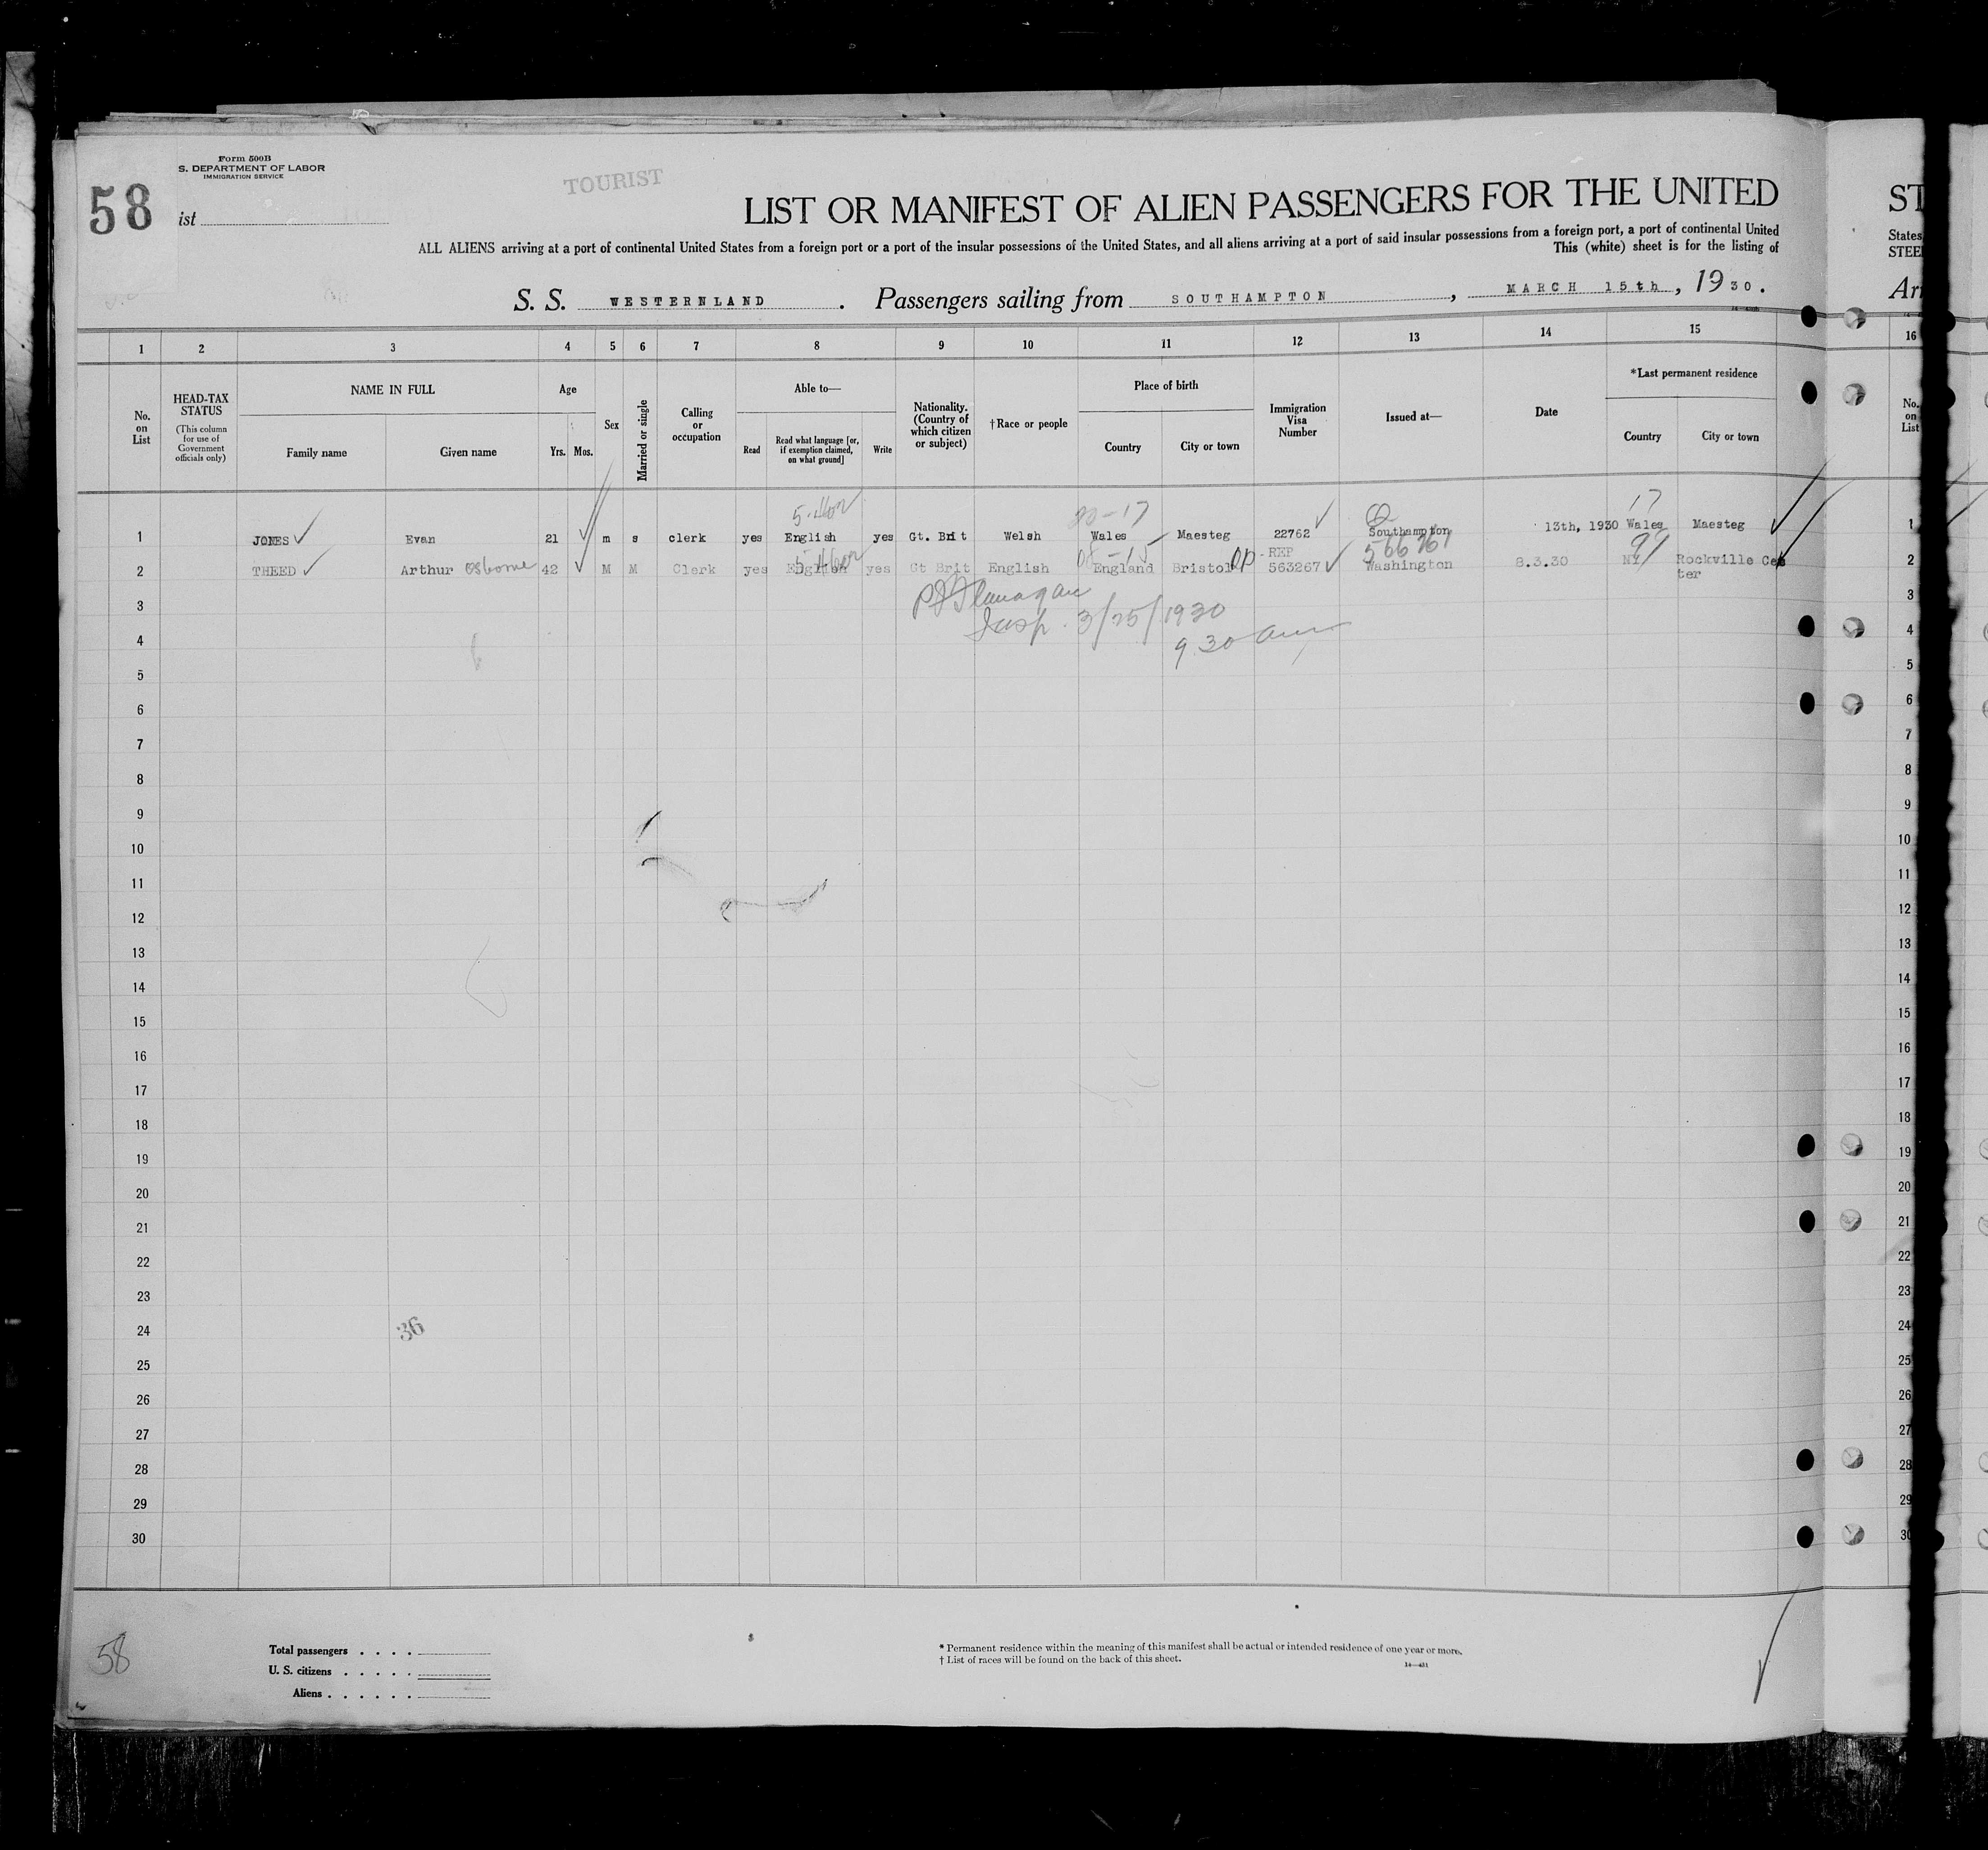 Form 500B
S. DEPARTMENT OF LABOR
IMMIGRATION SERVICE
58
ist
TOURIST
LIST OR MANIFEST OF ALIEN PASSENGERS FOR THE UNITED
ALL ALIENS arriving at a port of continental United States from a foreign port or a port of the insular possessions of the United States, and all aliens arriving at a port of said insular possessions from a foreign port, a port of continental United
This (white) sheet is for the listing of
S. S. WESTERNLAND . Passengers sailing from SOUTHAMPTON , MARCH 15th , 1930 .
ST
States
STEE
Ar
1 2 3 4 5 6 7 8 9 10 11 12 13 14 15 16
No. on List
HEAD-TAX STATUS
(This column for use of Government officials only)
NAME IN FULL
Family name Given name
Age
Yrs. Mos.
Sex
Married or single
Calling or occupation
Able to—
Read
Read what language [or, if exemption claimed, on what ground]
Write
Nationality. (Country of which citizen or subject)
†Race or people
Place of birth
Country City or town
Immigration Visa Number
Issued at—
Date
*Last permanent residence
Country City or town
No. on List
20-17 17
1 JONES Evan 21 m s clerk yes English yes Gt. Brit Welsh Wales Maesteg 22762 Southampton 13th, 1930 Wales Maesteg 1
2 THEED Arthur Osborne 42 M M Clerk yes English yes Gt Brit English England Bristol REP 563267 Washington 8.3.30 NY Rockville Cen 2
ter
3 P J Flanagan 3
Insp. 3/25/1930
4 9 30 am 4
5 5
6 6
7 7
8 8
9 9
10 10
11 11
12 12
13 13
14 14
15 15
16 16
17 17
18 18
19 19
20 20
21 21
22 22
23 23
24 36 24
25 25
26 26
27 27
28 28
29 29
30 30
58
Total passengers . . . .
U. S. citizens . . . . .
Aliens . . . . . .
* Permanent residence within the meaning of this manifest shall be actual or intended residence of one year or more.
† List of races will be found on the back of this sheet.